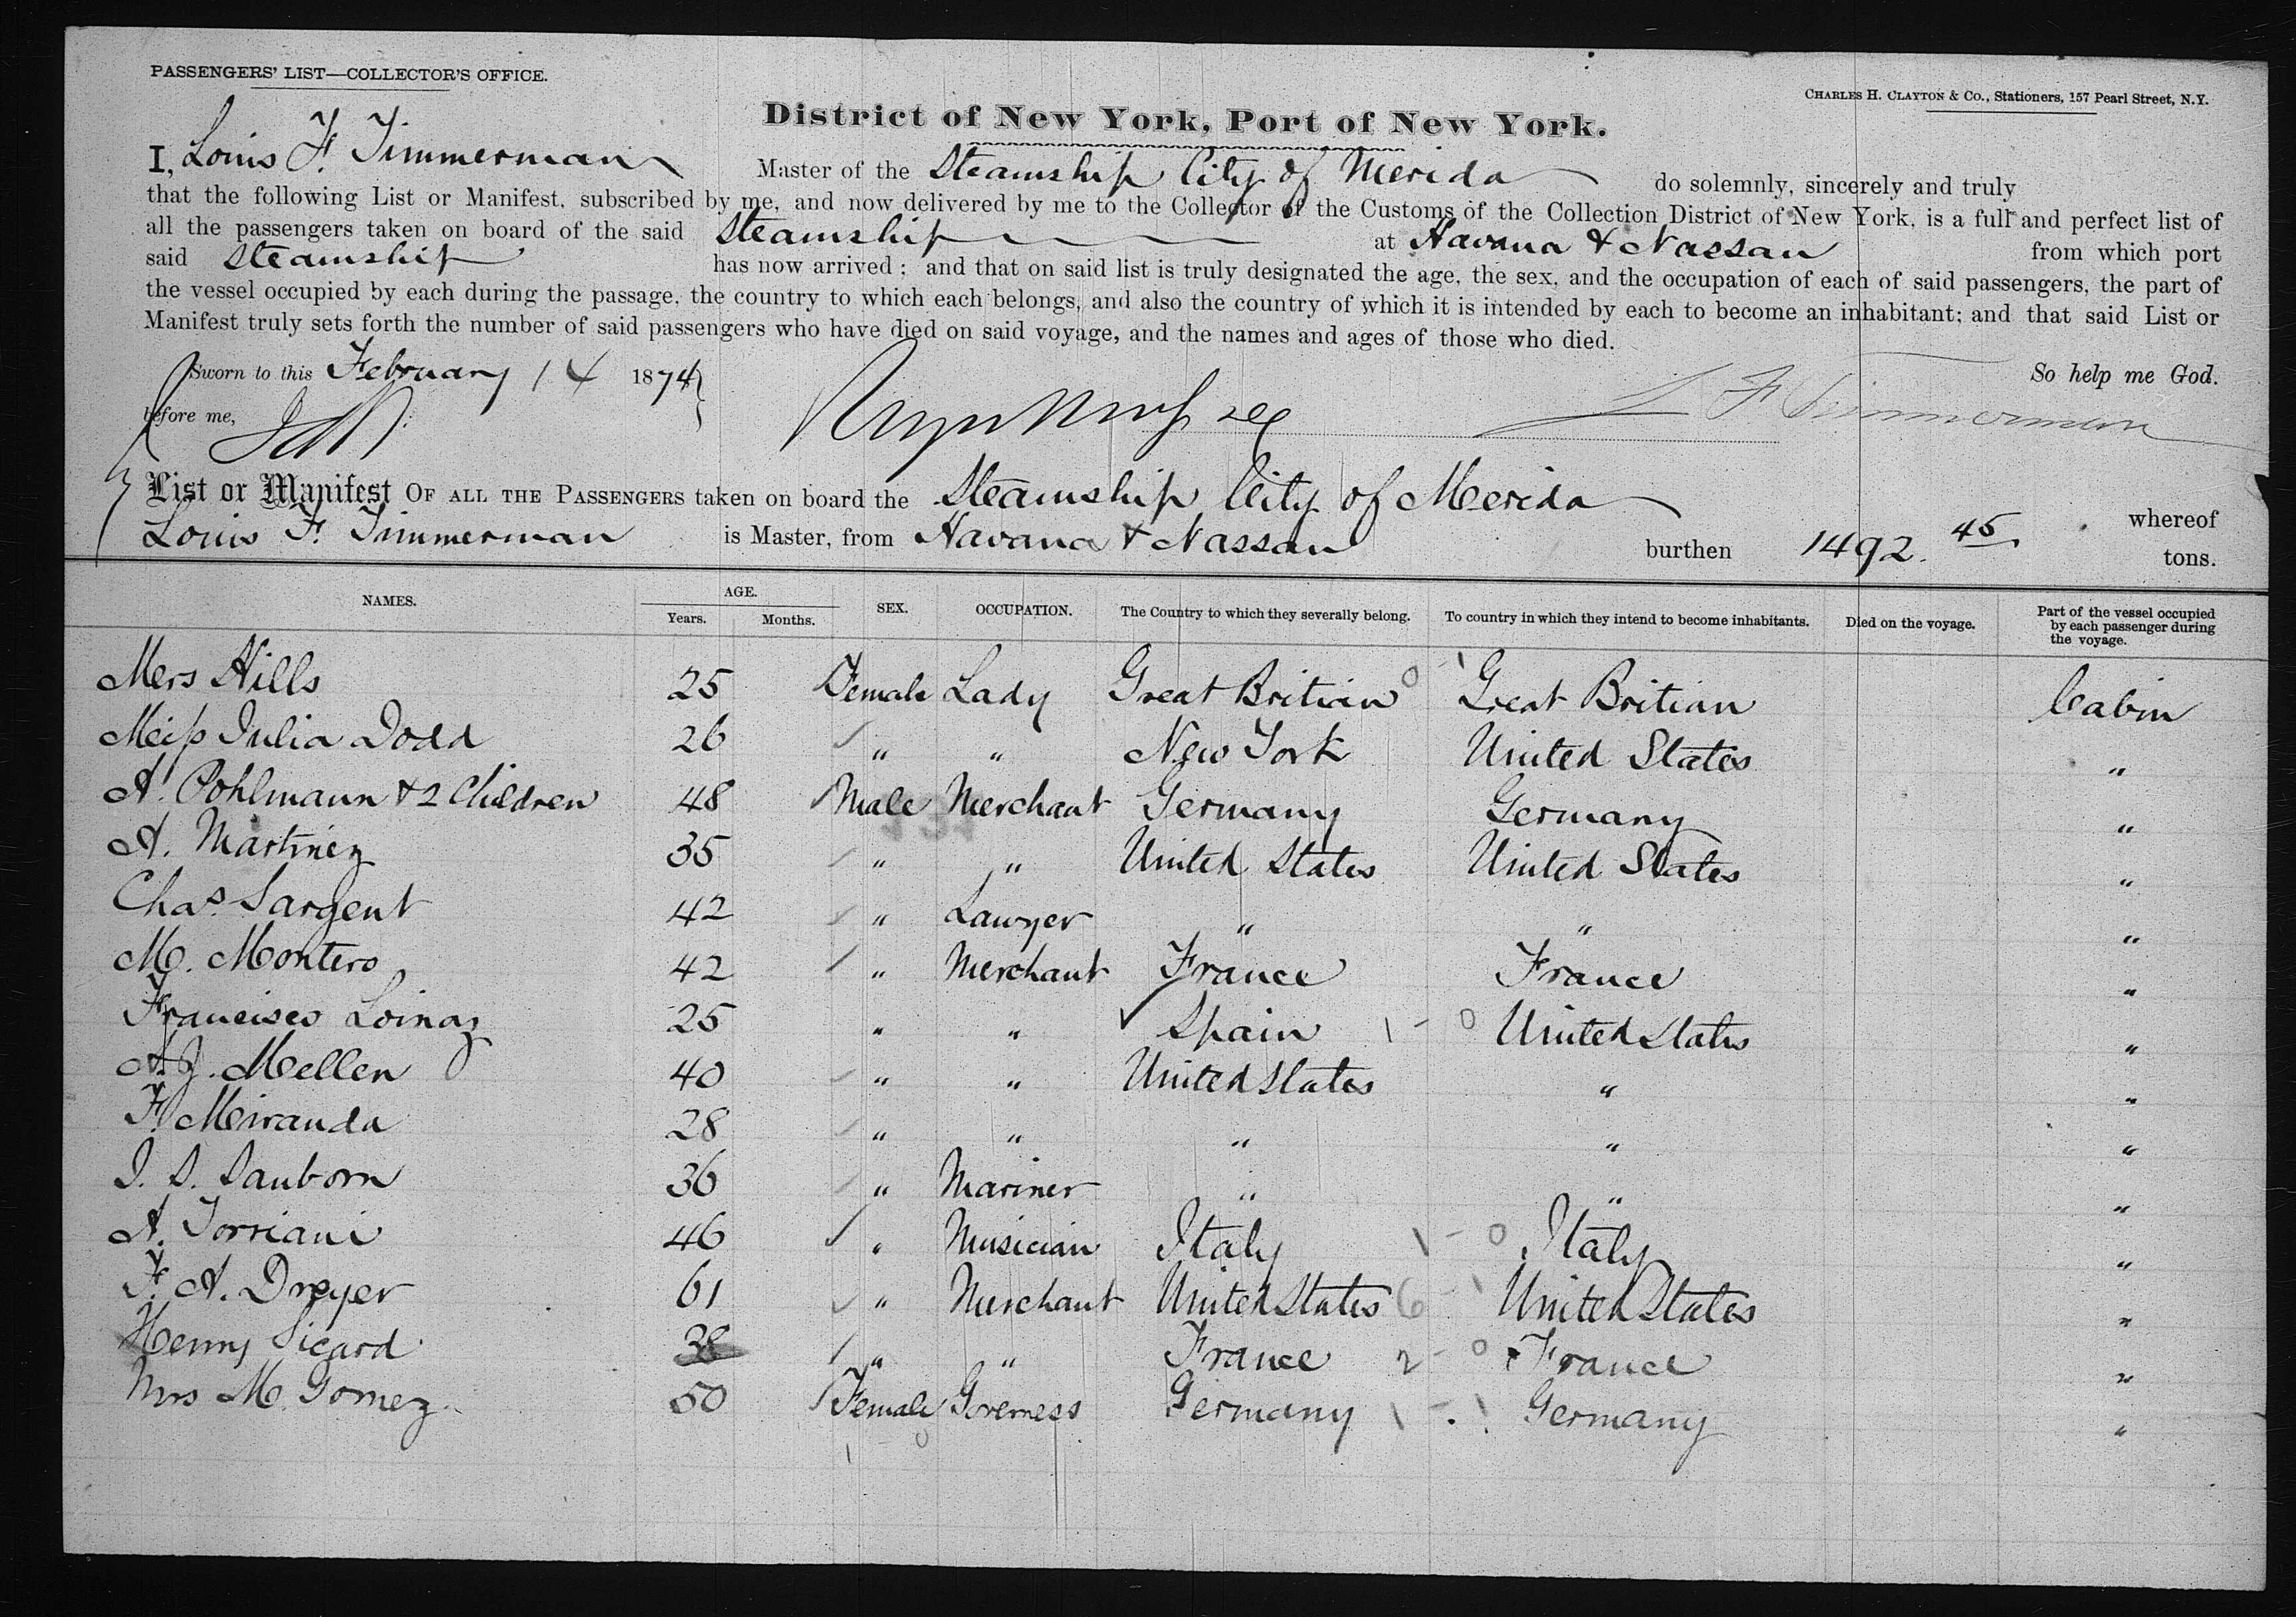 PASSENGERS' LIST—COLLECTOR'S OFFICE.
CHARLES H. CLAYTON & CO., Stationers, 157 Pearl Street, N.Y.
District of New York, Port of New York.
I, Louis F. Timmerman Master of the Steamship City of Merida do solemnly, sincerely and truly
that the following List or Manifest, subscribed by me, and now delivered by me to the Collector of the Customs of the Collection District of New York, is a full and perfect list of
all the passengers taken on board of the said Steamship at Havana & Nassau from which port
said Steamship has now arrived; and that on said list is truly designated the age, the sex, and the occupation of each of said passengers, the part of
the vessel occupied by each during the passage, the country to which each belongs, and also the country of which it is intended by each to become an inhabitant; and that said List or
Manifest truly sets forth the number of said passengers who have died on said voyage, and the names and ages of those who died.
Sworn to this February 14 1874 So help me God.
before me, L F Timmerman
List or Manifest OF ALL THE PASSENGERS taken on board the Steamship City of Merida whereof
Louis F. Timmerman is Master, from Havana & Nassau burthen 1492.45 tons.
NAMES. AGE. Years. Months. SEX. OCCUPATION. The Country to which they severally belong. To country in which they intend to become inhabitants. Died on the voyage. Part of the vessel occupied by each passenger during the voyage.
Mrs Hills 25 Female Lady Great Britian 0 - 1 Great Britian Cabin
Miss Julia Dodd 26 " " New York United States "
A. Pohlmann & 2 Children 48 Male Merchant Germany Germany "
A. Martinez 35 " " United States United States "
Chas. Sargent 42 " Lawyer " " "
M. Montero 42 " Merchant France France "
Francisco Loinaz 25 " " Spain 1 - 0 United States "
A. J. Mellen 40 " " United States " "
F. Miranda 28 " " " " "
J. S. Sanborn 36 " Mariner " " "
A. Torriani 46 " Musician Italy 1 - 0 Italy "
F. A. Dreyer 61 " Merchant United States 6 - 1 United States "
Henry Sicard 38 " " France 2 - 0 France "
Mrs M. Gomez 50 Female Governess Germany 1 - 1 Germany "
1 - 0